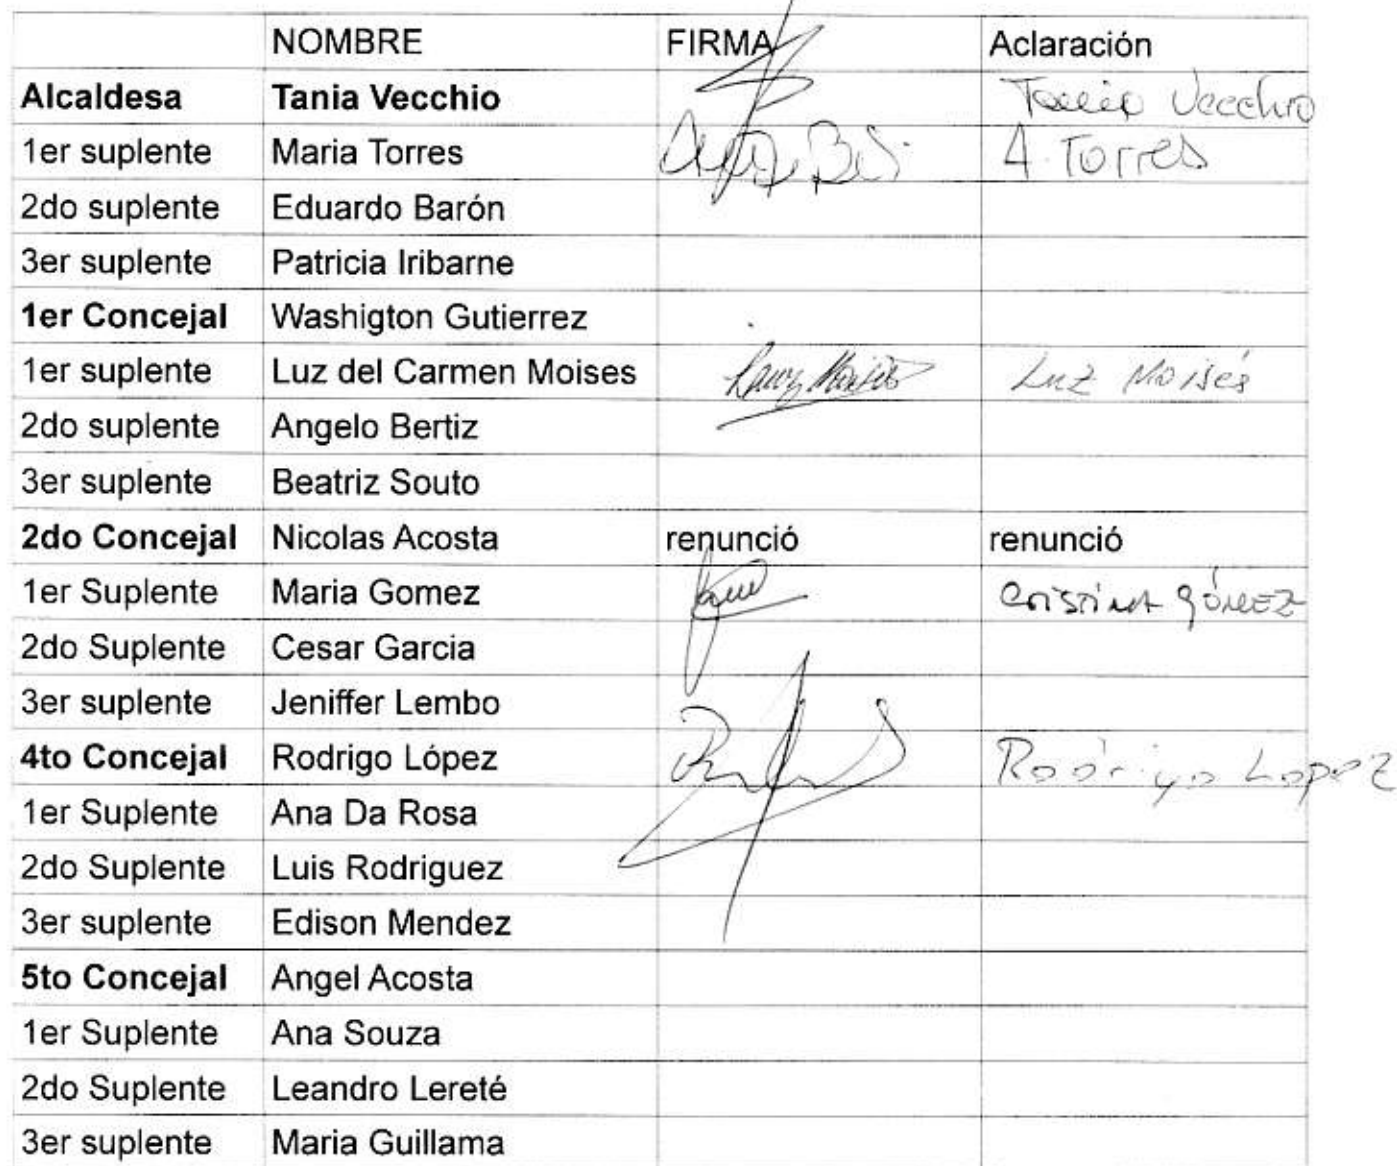 NOMBRE FIRMA Aclaración
Alcaldesa Tania Vecchio Tania Vecchio
1er suplente Maria Torres A. Torres
2do suplente Eduardo Barón
3er suplente Patricia Iribarne
1er Concejal Washigton Gutierrez
1er suplente Luz del Carmen Moises Luz Moisés
2do suplente Angelo Bertiz
3er suplente Beatriz Souto
2do Concejal Nicolas Acosta renunció renunció
1er Suplente Maria Gomez Cristina Gómez
2do Suplente Cesar Garcia
3er suplente Jeniffer Lembo
4to Concejal Rodrigo López Rodrigo Lopez
1er Suplente Ana Da Rosa
2do Suplente Luis Rodriguez
3er suplente Edison Mendez
5to Concejal Angel Acosta
1er Suplente Ana Souza
2do Suplente Leandro Lereté
3er suplente Maria Guillama